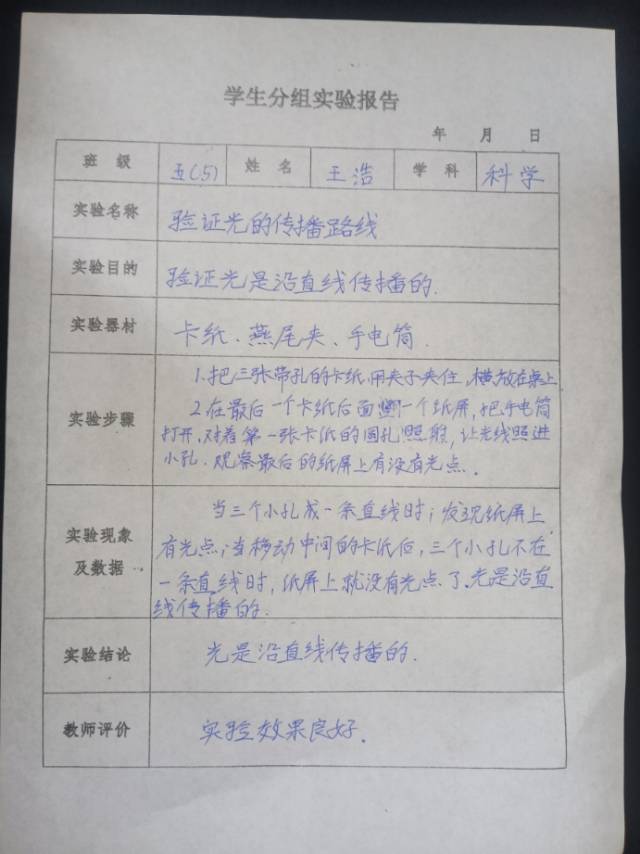 学生分组实验报告
年 月 日
班 级 五(5) 姓 名 王浩 学 科 科学
实验名称 验证光的传播路线
实验目的 验证光是沿直线传播的.
实验器材 卡纸、燕尾夹、手电筒.
实验步骤
1.把三张带孔的卡纸用夹子夹住,横放在桌上
2.在最后一个卡纸后面一个纸屏,把手电筒
打开,对着第一张卡纸的圆孔照射,让光线照进
小孔.观察最后的纸屏上有没有光点.
实验现象及数据
当三个小孔成一条直线时;发现纸屏上
有光点;当移动中间的卡纸后,三个小孔不在
一条直线时,纸屏上就没有光点了.光是沿直
线传播的.
实验结论 光是沿直线传播的.
教师评价 实验效果良好.